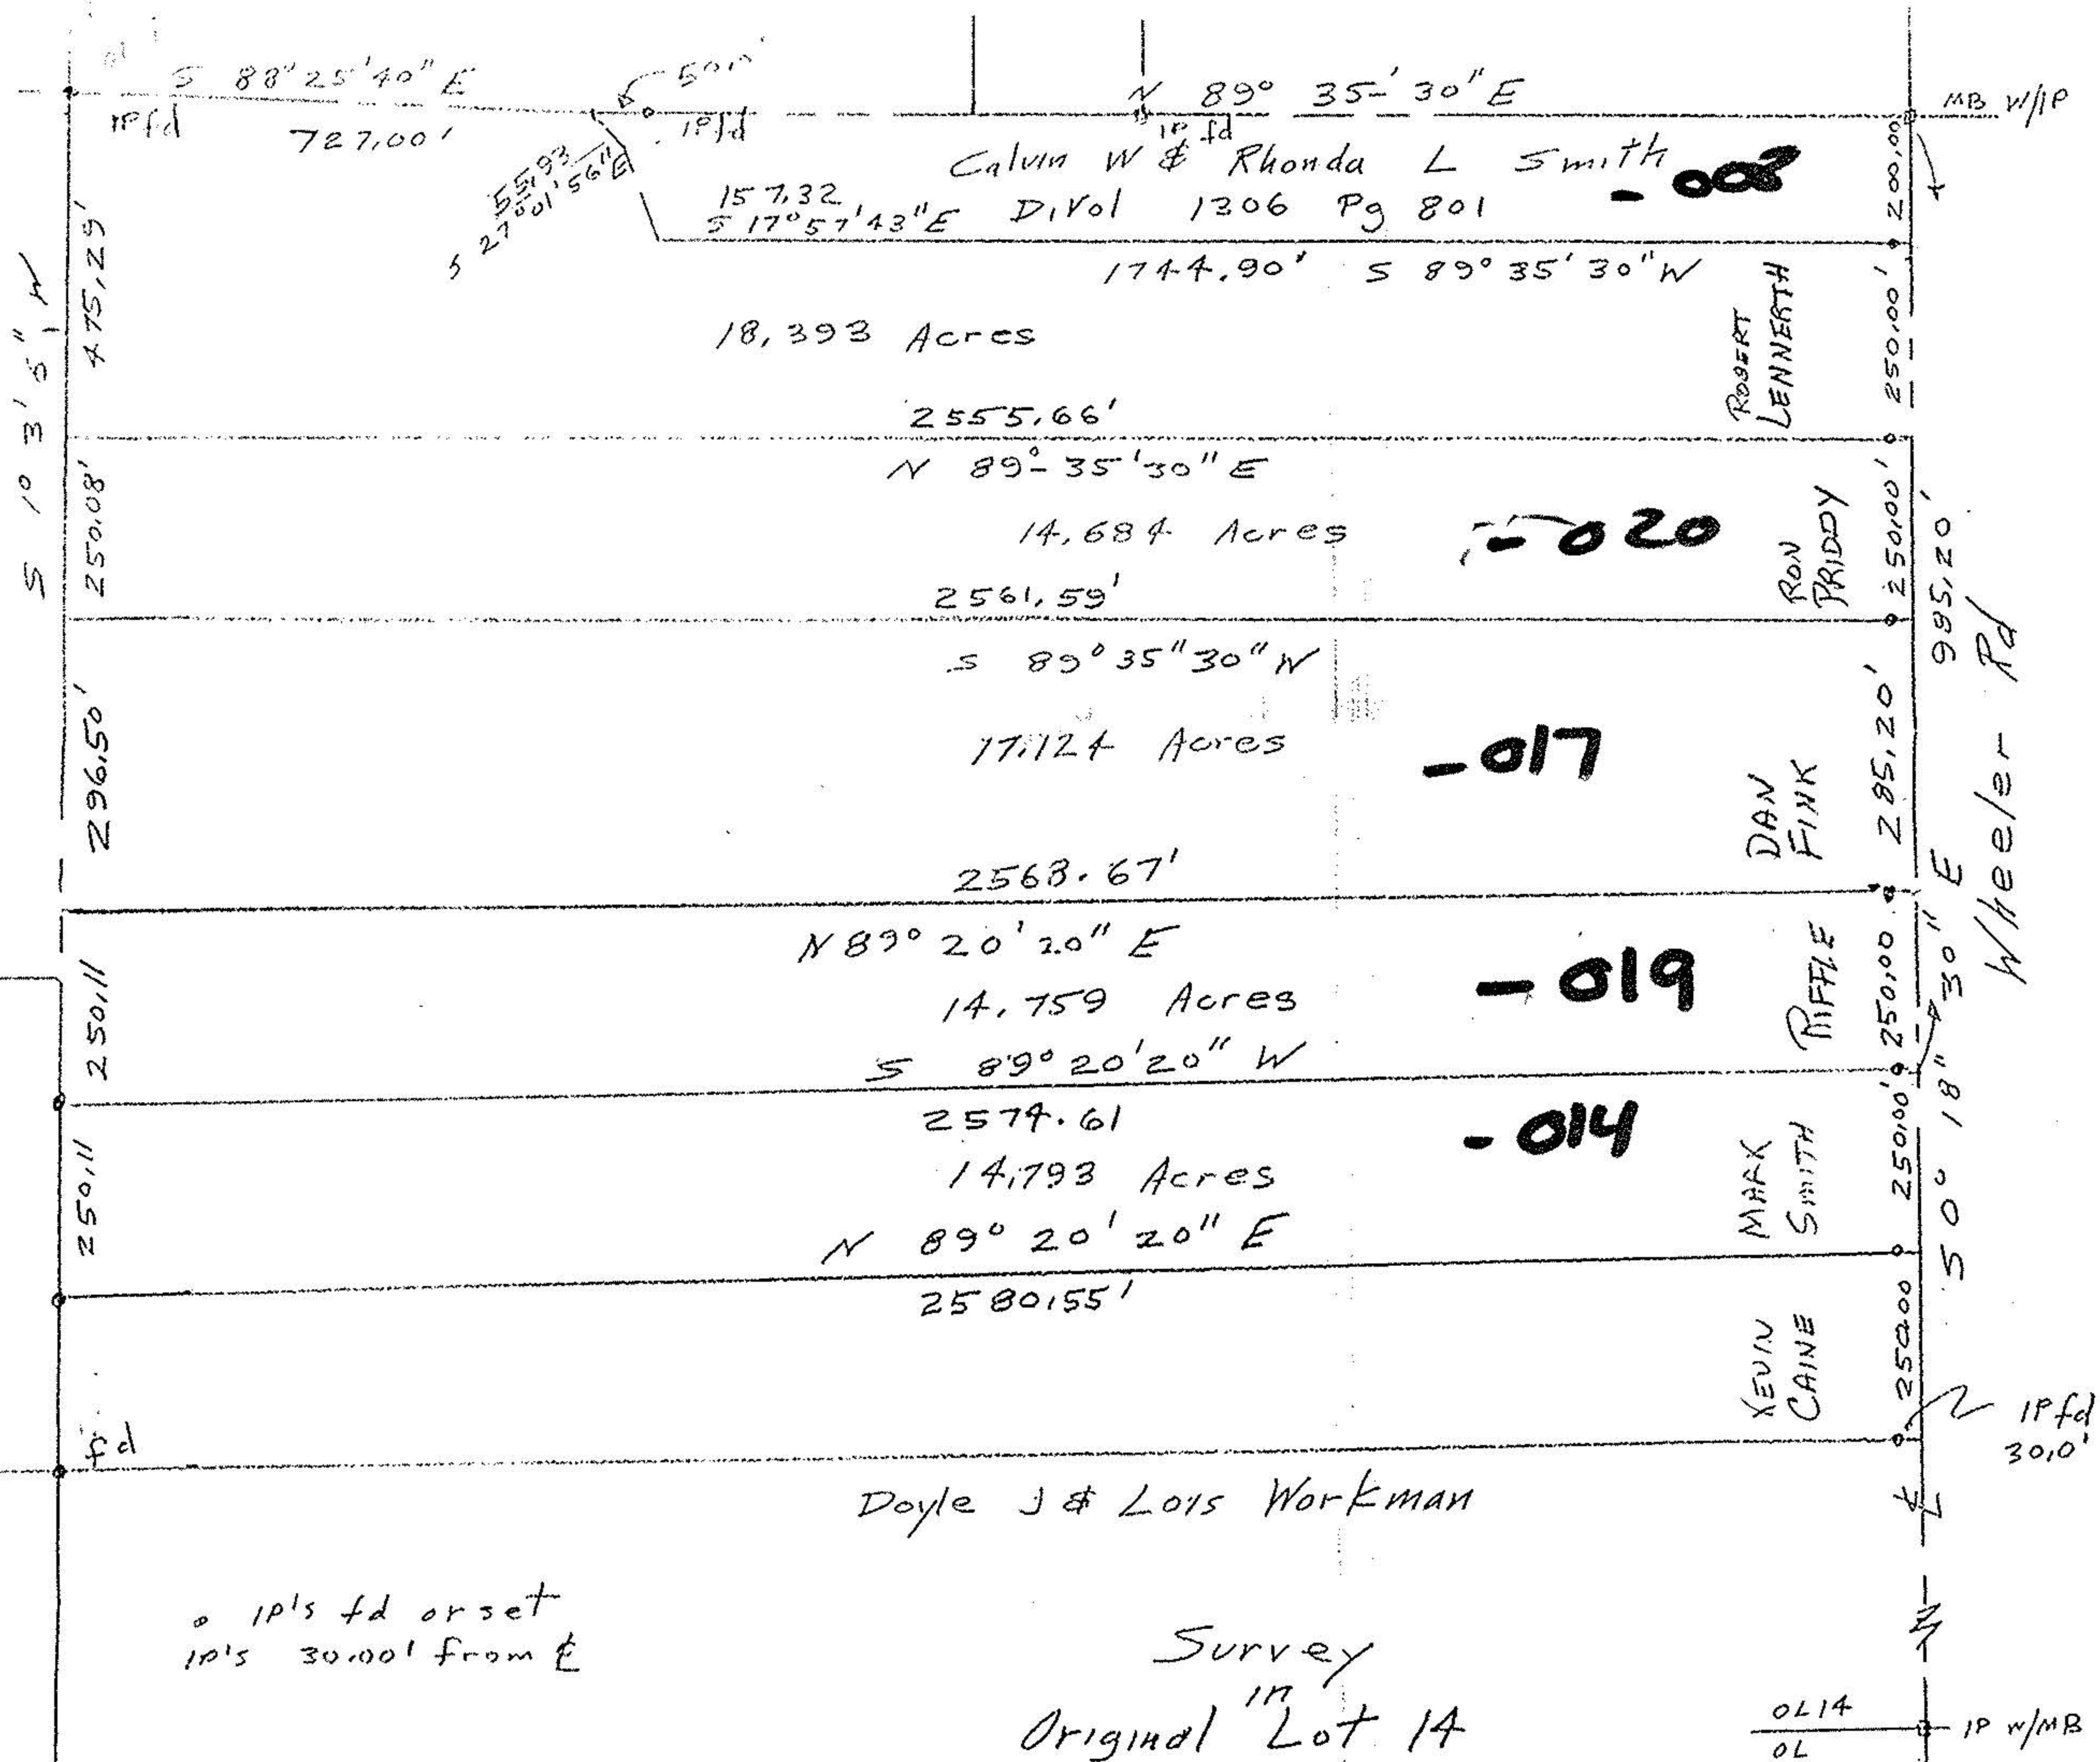 S 88° 25' 40" E
50.0'
N 89° 35' 30" E
MB W/IP
IPfd
727.00'
IPfd
IP fd
55.93
S 27°01'56"E
157.32
S 17°57'43"E
Calvin W & Rhonda L Smith
D.Vol 1306 Pg 801
-008
200.00
1744.90' S 89° 35' 30" W
475.29'
18,393 Acres
ROBERT
LENNERTH
250.00'
2555.66'
N 89° 35' 30" E
S 1° 3' W
250.08'
14.684 Acres
-020
RON
PRIDDY
250.00'
995.20'
2561.59'
S 89° 35" 30" W
296.50'
17.124 Acres
-017
DAN
FINK
285.20'
Wheeler Rd
2568.67'
N 89° 20' 20" E
250.11
14.759 Acres
-019
RIFFLE
250.00
S 89° 20' 20" W
2574.61
250.11
14.793 Acres
-014
MARK
SMITH
250.00'
S 0° 18" 30" E
N 89° 20' 20" E
2580.55'
KEVIN
CAINE
250.00
IPfd
30.0'
fd
Doyle J & Lois Workman
IP's fd or set
IP's 30.00' from ℄
Survey
in
Original Lot 14
OL14
OL
IP W/MB